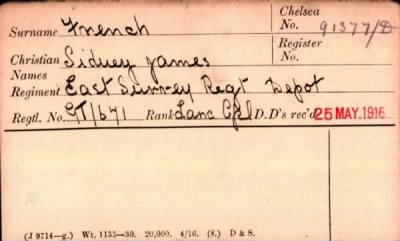 Surname French Chelsea No. 91377/D
Christian Names Sidney James Register No.
Regiment East Surrey Regt Depot
Regtl. No. GT/671 Rank Lanc Cpl D.D's rec'd 25 MAY.1916
(J 9714—g.) Wt. 1155—30. 20,000. 4/16. (S.) D & S.